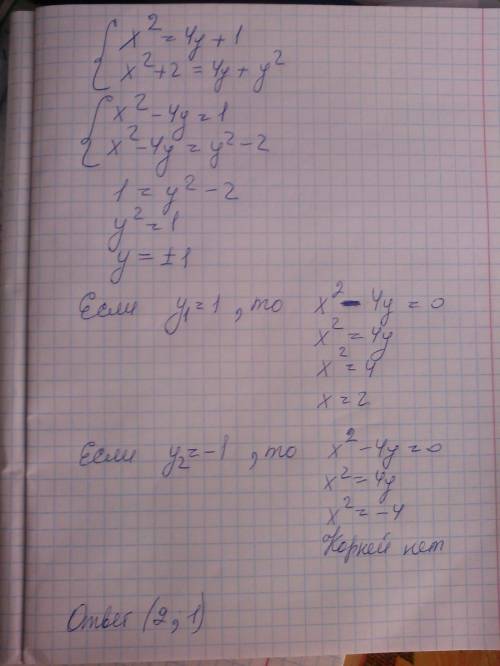 x² = 4y + 1
x² + 2 = 4y + y²
x² - 4y = 1
x² - 4y = y² - 2
1 = y² - 2
y² = 1
y = ±1
Если y₁ = 1, то x² - 4y = 0
x² = 4y
x² = 4
x = 2
Если y₂ = -1, то x² - 4y = 0
x² = 4y
x² = -4
Корней нет
Ответ (2; 1)